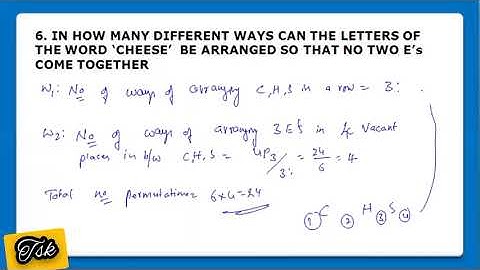 6. IN HOW MANY DIFFERENT WAYS CAN THE LETTERS OF
THE WORD ‘CHEESE’ BE ARRANGED SO THAT NO TWO E’s
COME TOGETHER
W1: No of ways of arranging C,H,S in a row = 3!
W2: No of ways of arranging 3 E's in 4 vacant
places in b/w C,H,S = 4P3/3! = 24/6 = 4
Total no permutations 6x4=24
1 C 2 H 3 S 4
Tsk